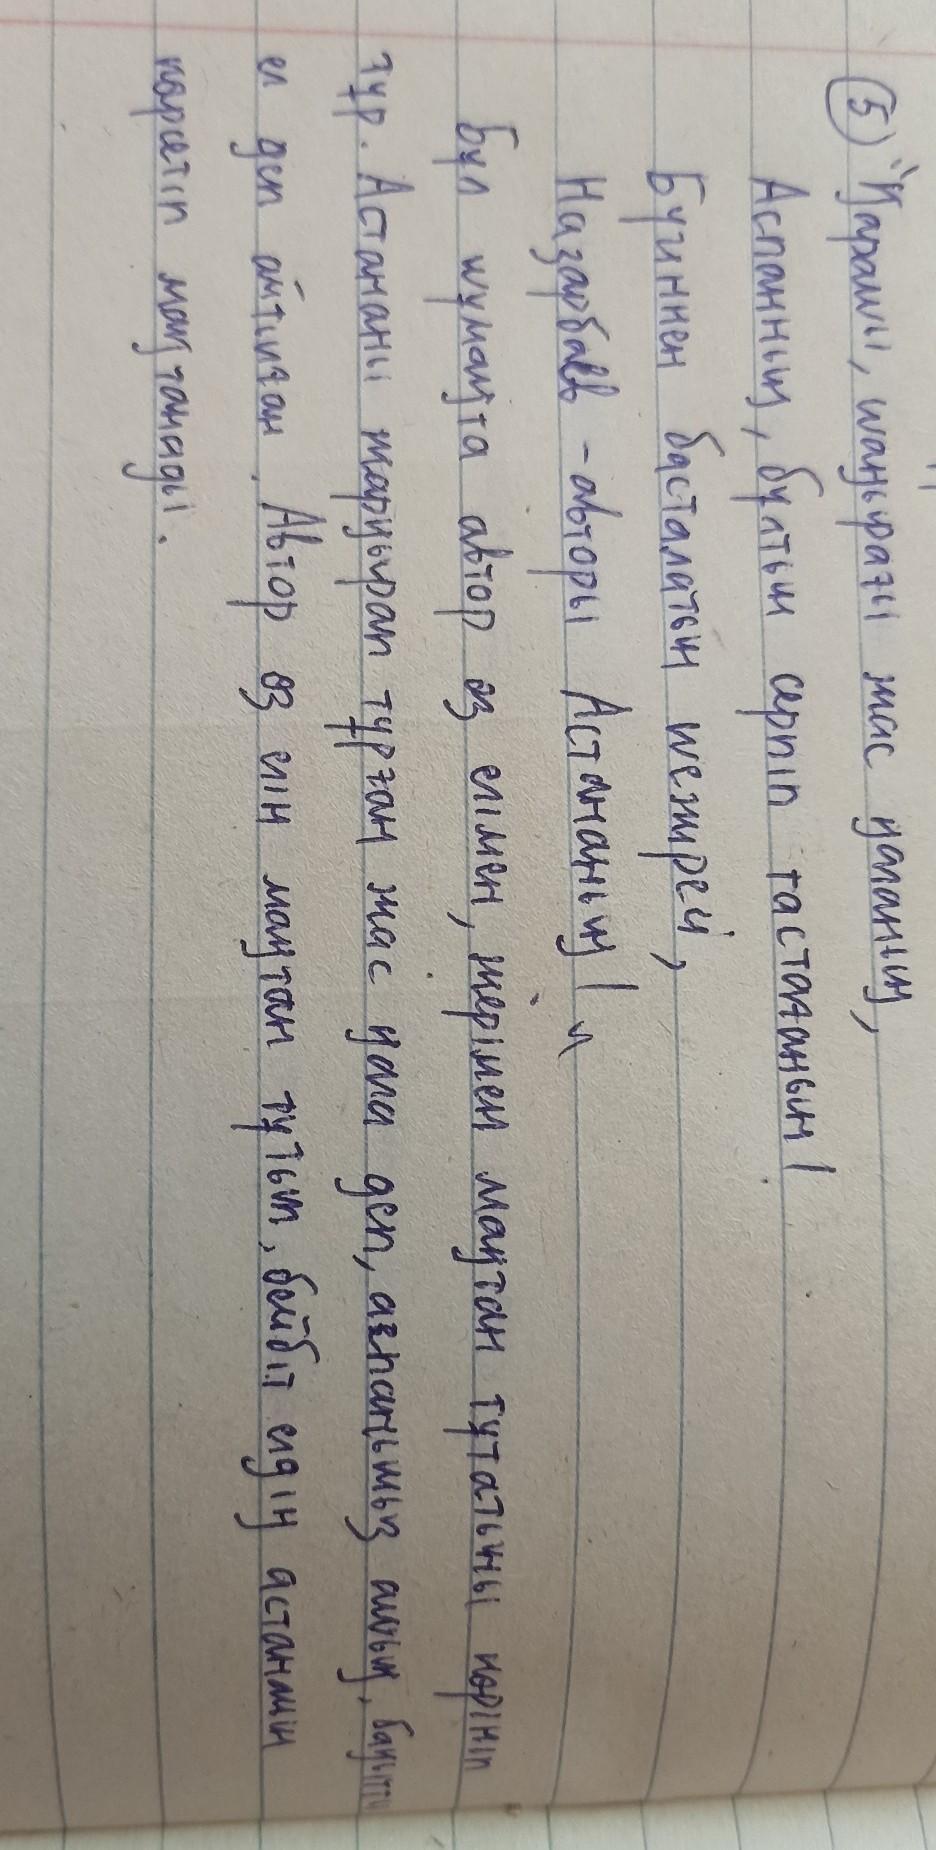 ⑤ "Қарашы, шаңырағы жас қаланың,
Аспанның, бұлтын серпіп тастағанын!
Бүгіннен басталатын шежіресі,
Назарбаев - авторы Астананың!"
Бұл шумақта автор өз елімен, жерімен мақтан тұтатыны көрініп
тұр. Астананы жарқырап тұрған жас қала деп, аспанымыз ашық, бақытты
ел деп айтылған. Автор өз елін мақтан тұтып, бейбіт елдің астанасын
көрсетіп мақтанады.